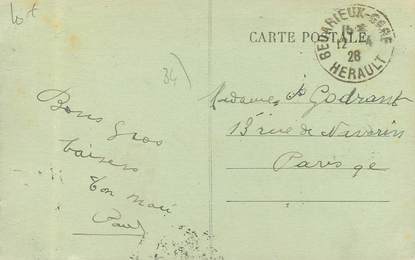 CARTE POSTALE
BEDARIEUX-GARE
15
12 - 4
28
HERAULT
34
Bons Gros
baisers
Ton mari
Paul
Godrant
13 rue de Navarin
Paris 9e